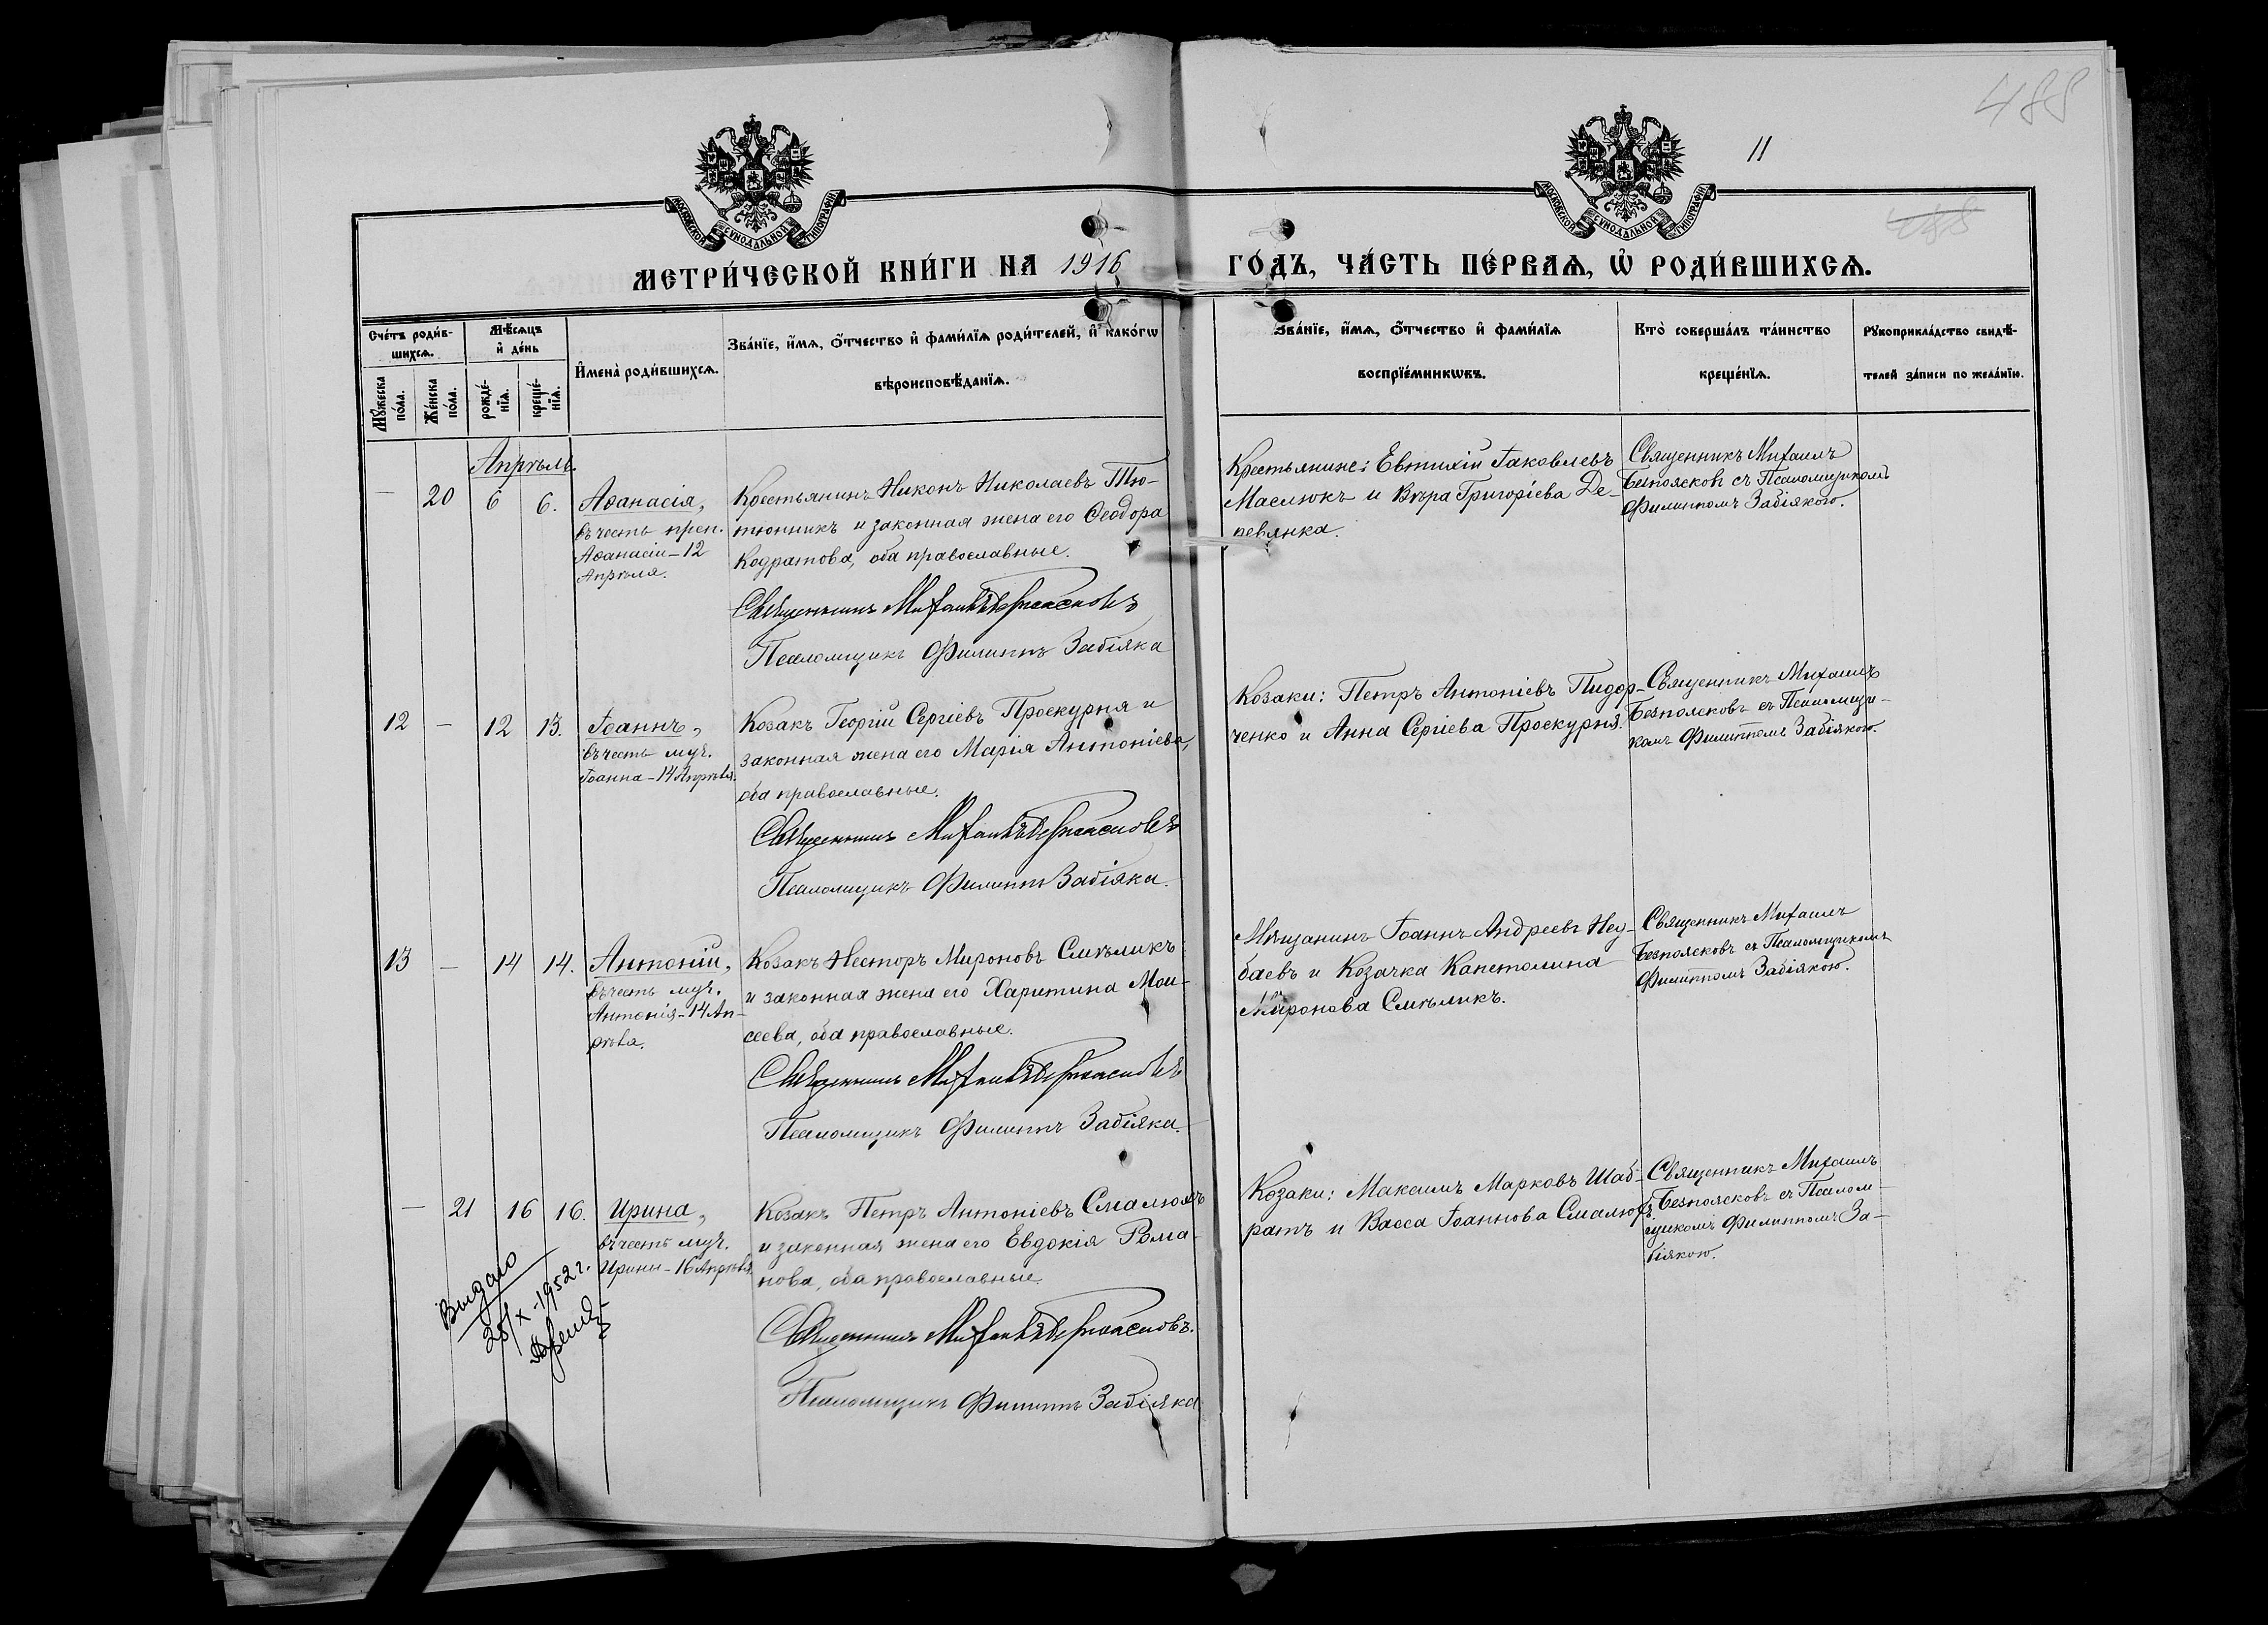 488
11
488
МОСКОВСКОЙ СѴНОДАЛЬНОЙ ТИПОГРАФІИ
МОСКОВСКОЙ СѴНОДАЛЬНОЙ ТИПОГРАФІИ
МЕТРИ́ЧЕСКОЙ КНИ́ГИ НА 1916 ГО́ДЪ, ЧА́СТЬ ПЕ́РВАѦ, Ѡ҆ РОДИ́ВШИХСѦ.
Сче́тъ роди́в-
шихсѧ.
Мꙋ́жеска
по́ла.
Же́нска
по́ла.
Мѣ́сѧцъ
и҆ де́нь
рожде́-
нїѧ.
креще́-
нїѧ.
И҆мена̀ роди́вшихсѧ.
Зва́нїе, и҆́мѧ, ѻ҆́тчество и҆ фами́лїѧ роди́телей, и҆ како́гѡ
вѣроисповѣ́данїѧ.
Зва́нїе, и҆́мѧ, ѻ҆́тчество и҆ фами́лїѧ
воспрїе́мникѡвъ.
Кто̀ соверша́лъ та́инство
креще́нїѧ.
Рꙋкоприкла́дство свидѣ́-
телей за́писи по жела́нїю.
Апрѣль.
— 20 6 6.
Аѳанасія,
въ честь преп.
Аѳанасіи – 12
Апрѣля.
Крестьянинъ Никонъ Николаевъ Тю-
тюнникъ и законная жена его Ѳеодора
Кодратова, оба православные.
Священникъ Михаилъ Безпоясковъ
Псаломщикъ Филиппъ Забіяка
Крестьянине: Евтихій Іаковлевъ
Маслюкъ и Вѣра Григоріева Де-
ревянка.
Священникъ Михаилъ
Безпоясковъ съ Псаломщикомъ
Филиппомъ Забіякою.
12 — 12 13.
Іоаннъ,
въ честь муч.
Іоанна – 14 Апрѣля.
Козакъ Георгій Сергіевъ Проскурня и
законная жена его Марія Антоніева,
оба православные.
Священникъ Михаилъ Безпоясковъ
Псаломщикъ Филиппъ Забіяка.
Козаки: Петръ Антоніевъ Пидор-
ченко и Анна Сергіева Проскурня.
Священникъ Михаилъ
Безпоясковъ съ Псаломщи-
комъ Филиппомъ Забіякою.
13 — 14 14.
Антоній,
въ честь муч.
Антонія – 14 Ап-
рѣля.
Козакъ Несторъ Мироновъ Смѣликъ
и законная жена его Харитина Мои-
сеева, оба православные.
Священникъ Михаилъ Безпоясковъ
Псаломщикъ Филиппъ Забіяка.
Мѣщанинъ Іоаннъ Андреевъ Неу-
баевъ и Козачка Капетолина
Миронова Смѣликъ.
Священникъ Михаилъ
Безпоясковъ съ Псаломщикомъ
Филиппомъ Забіякою.
— 21 16 16.
Ирина,
въ честь муч.
Ирины – 16 Апрѣля.
Козакъ Петръ Антоніевъ Смалюхъ
и законная жена его Евдокія Рома-
нова, оба православные.
Священникъ Михаилъ Безпоясковъ.
Псаломщикъ Филиппъ Забіяка
Козаки: Максимъ Марковъ Шаб-
ратъ и Васса Іоаннова Смалюхъ.
Священникъ Михаилъ
Безпоясковъ съ Псалом-
щикомъ Филиппомъ За-
біякою.
Выдано
25/X-1952 г.